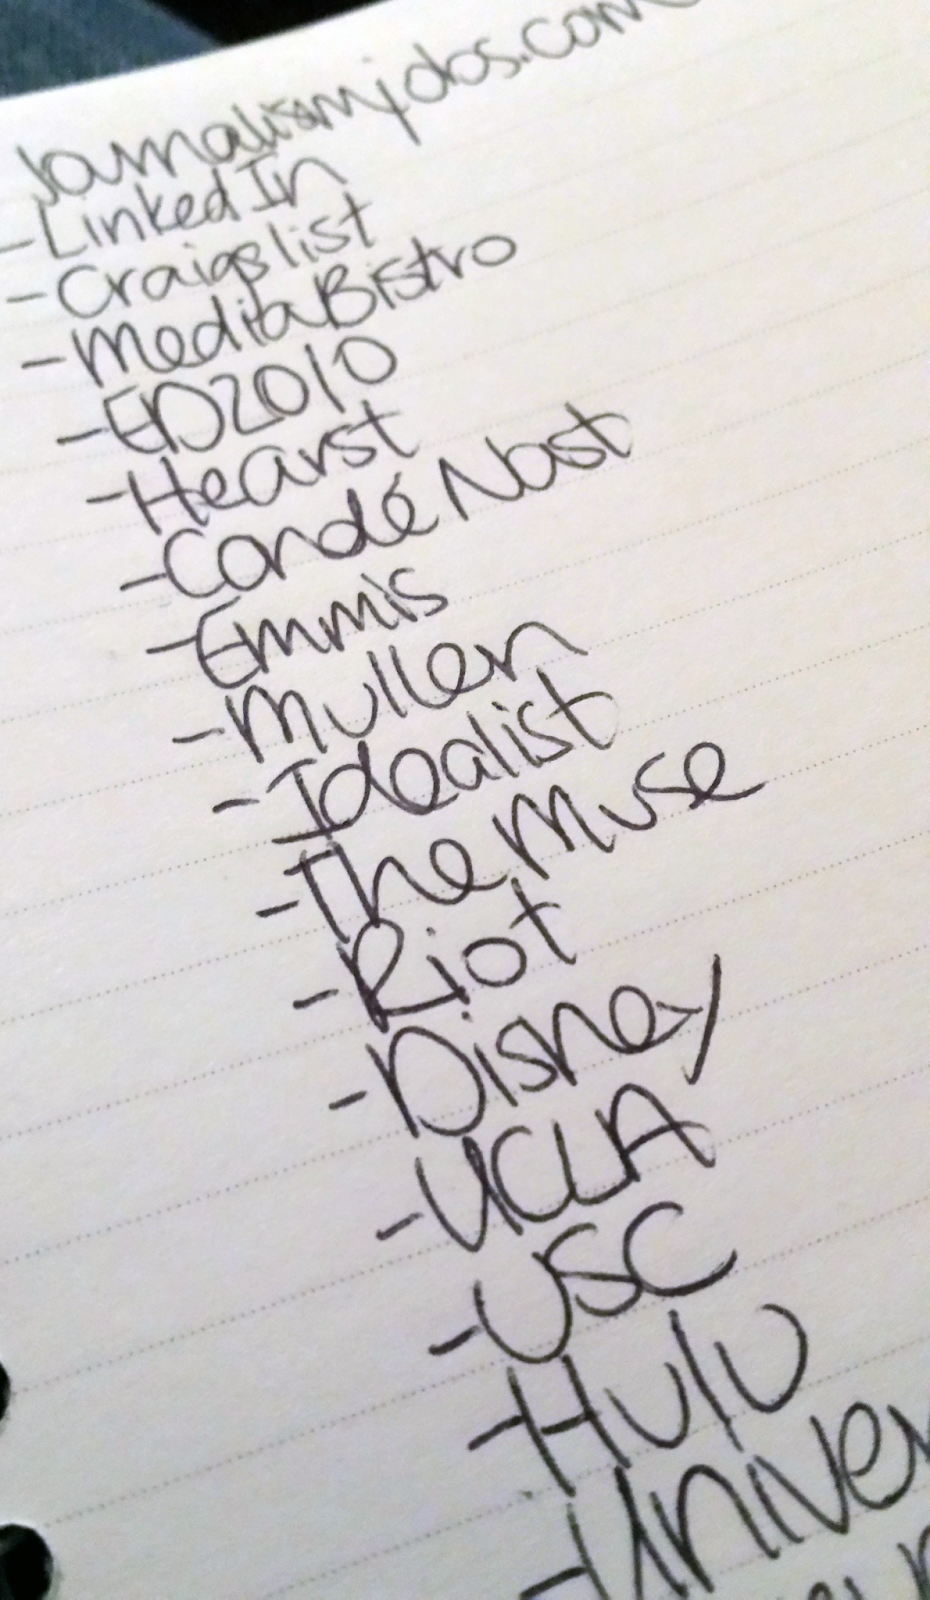 Journalismjobs.com
-LinkedIn
-Craigslist
-MediaBistro
-ED2010
-Hearst
-Condé Nast
-Emmis
-Mullen
-Idealist
-The Muse
-Riot
-Disney
-UCLA
-USC
-Hulu
-Univer